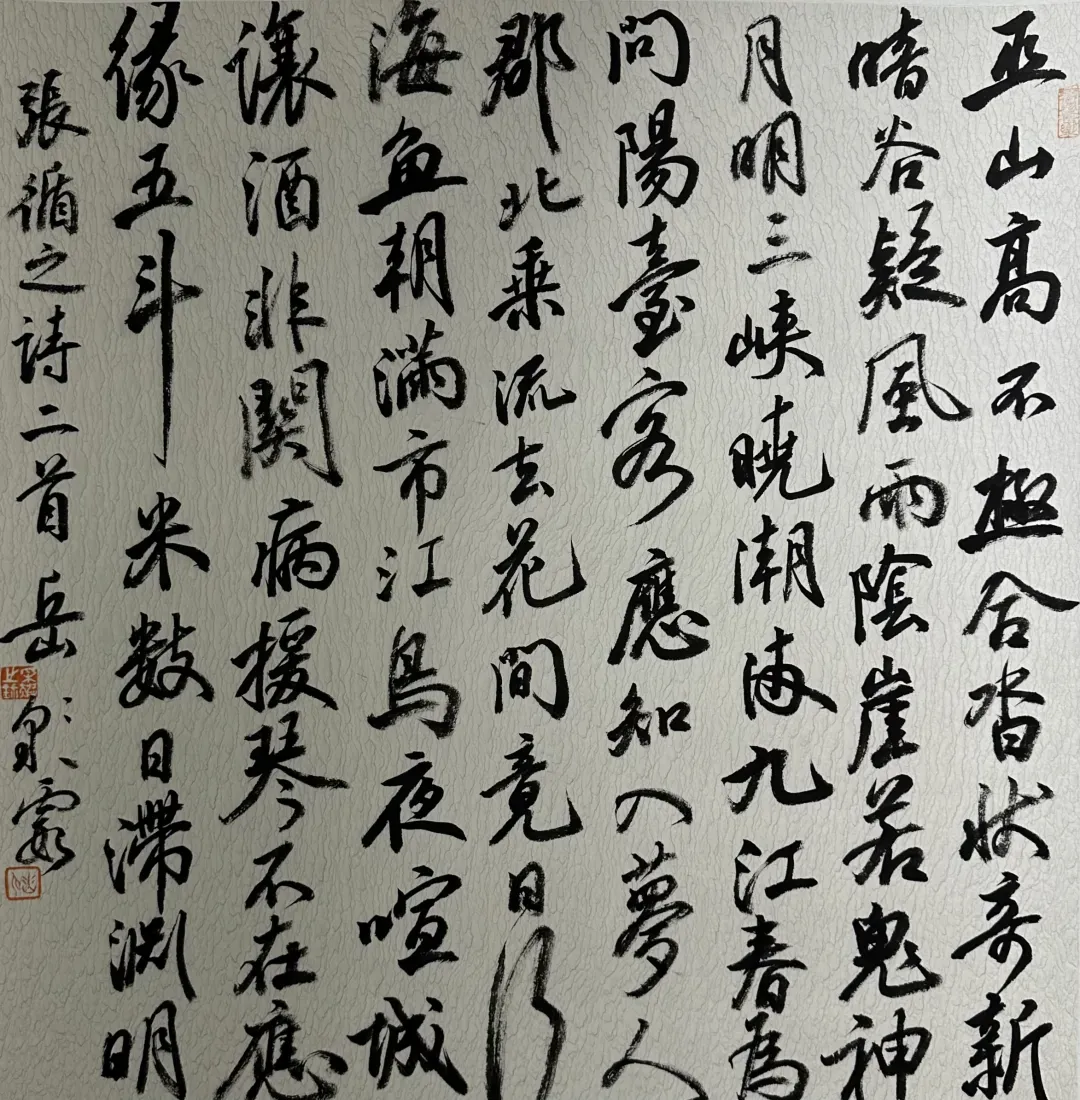 巫山高不極合沓狀奇新
暗谷疑風雨陰崖若鬼神
月明三峽曉潮滿九江春為
問陽臺客應知入夢人
郡北乘流去花間竟日行
海魚朝滿市江鳥夜喧城
讓酒非關病援琴不在應
緣五斗米數日滯淵明
張循之詩二首 岳